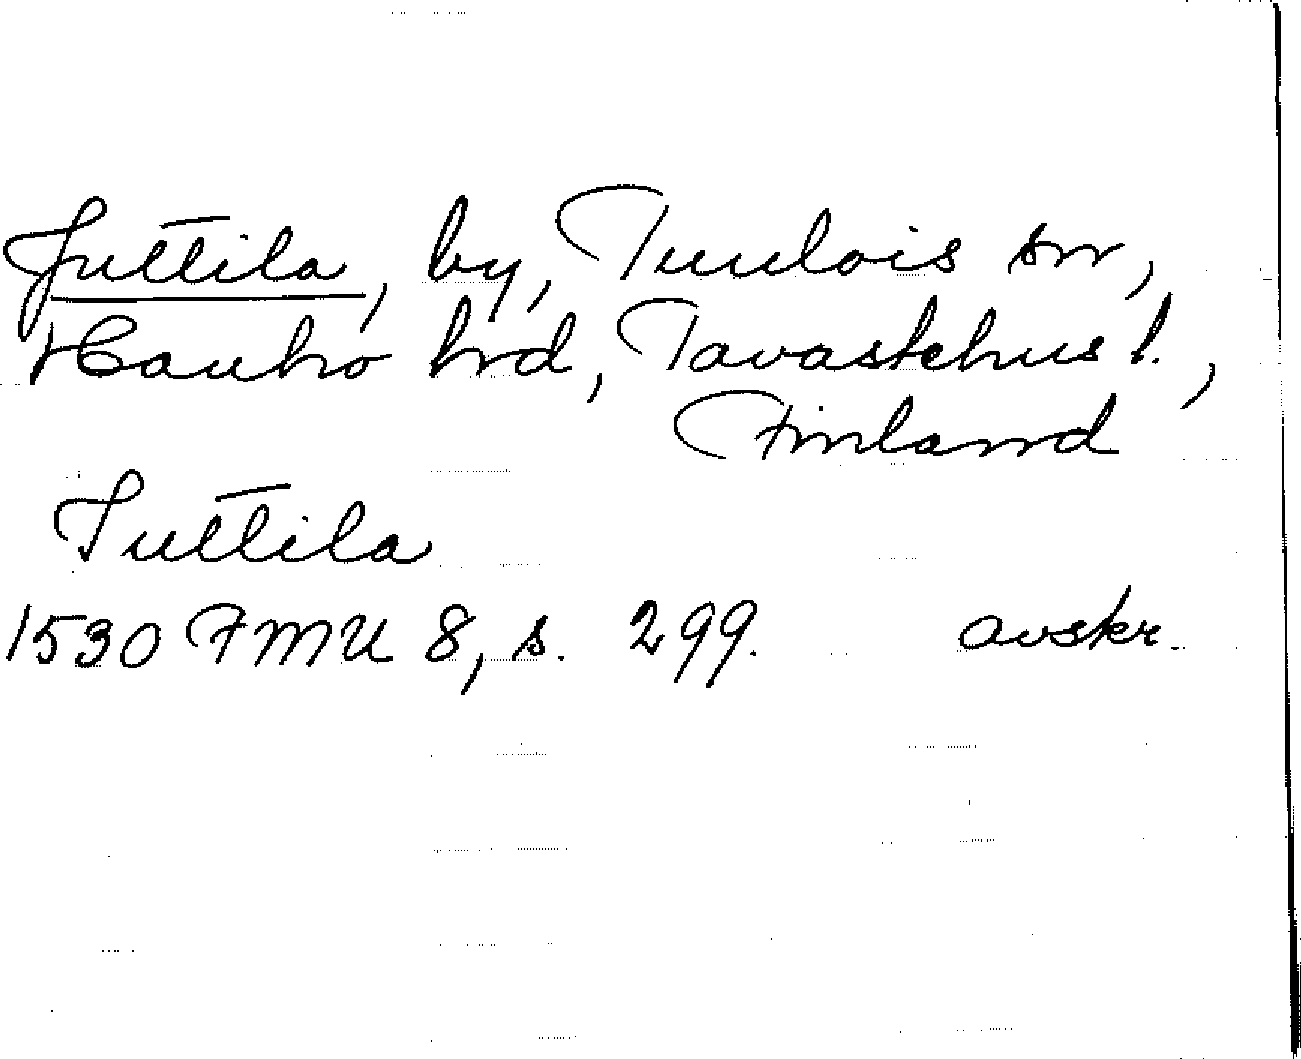 Juttila, by, Tuulois sn,
Hauho hrd, Tavastehus l.,
Finland
Juttila
1530 FMU 8, s. 299. avskr.